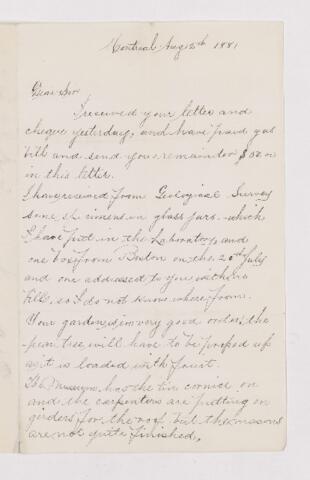 Montreal Aug 2th 1881
Dear Sir
I received your letter and
cheque yesterday, and have paid gas
bill and send you remainder
in this letter.
I have received from Geological Survey
some specimens in glass jars which
I have put in the Laboratory and
one box from Boston on the 20th July
and one addressed to you with no
bill, so I do not know where from.
Your garden is in very good order, the
pear tree will have to be proped up
as it is loaded with fruit.
The Museum has the tin cornice on
and the carpenters are putting on
girders for the roof but the masons
are not quite finished.